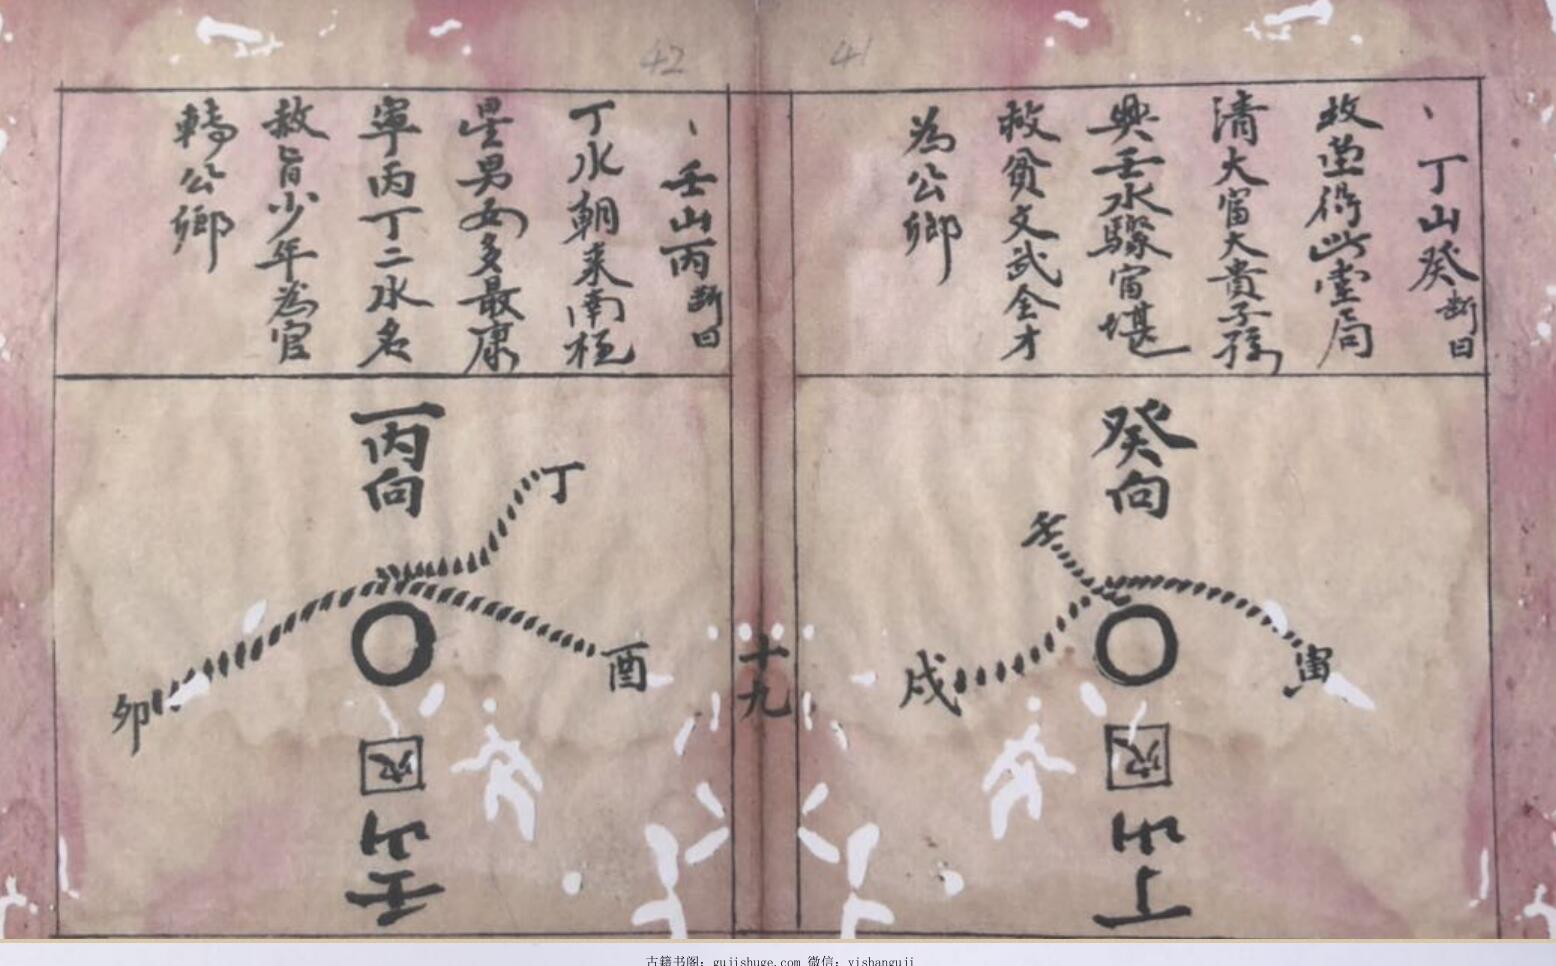 41
、丁山癸断曰
故塋得此臺局
清大富大貴子孫
興壬水驟富堪
救貧文武全才
為公鄉
癸向
壬
戌
寅
穴
丁山
十九
42
、壬山丙断曰
丁水朝来南極
星男女多最康
寧丙丁二水名
赦旨少年為官
轉公鄉
丙向
丁
酉
卯
穴
壬山
古籍书阁：gujishuge.com 微信：yishanguji